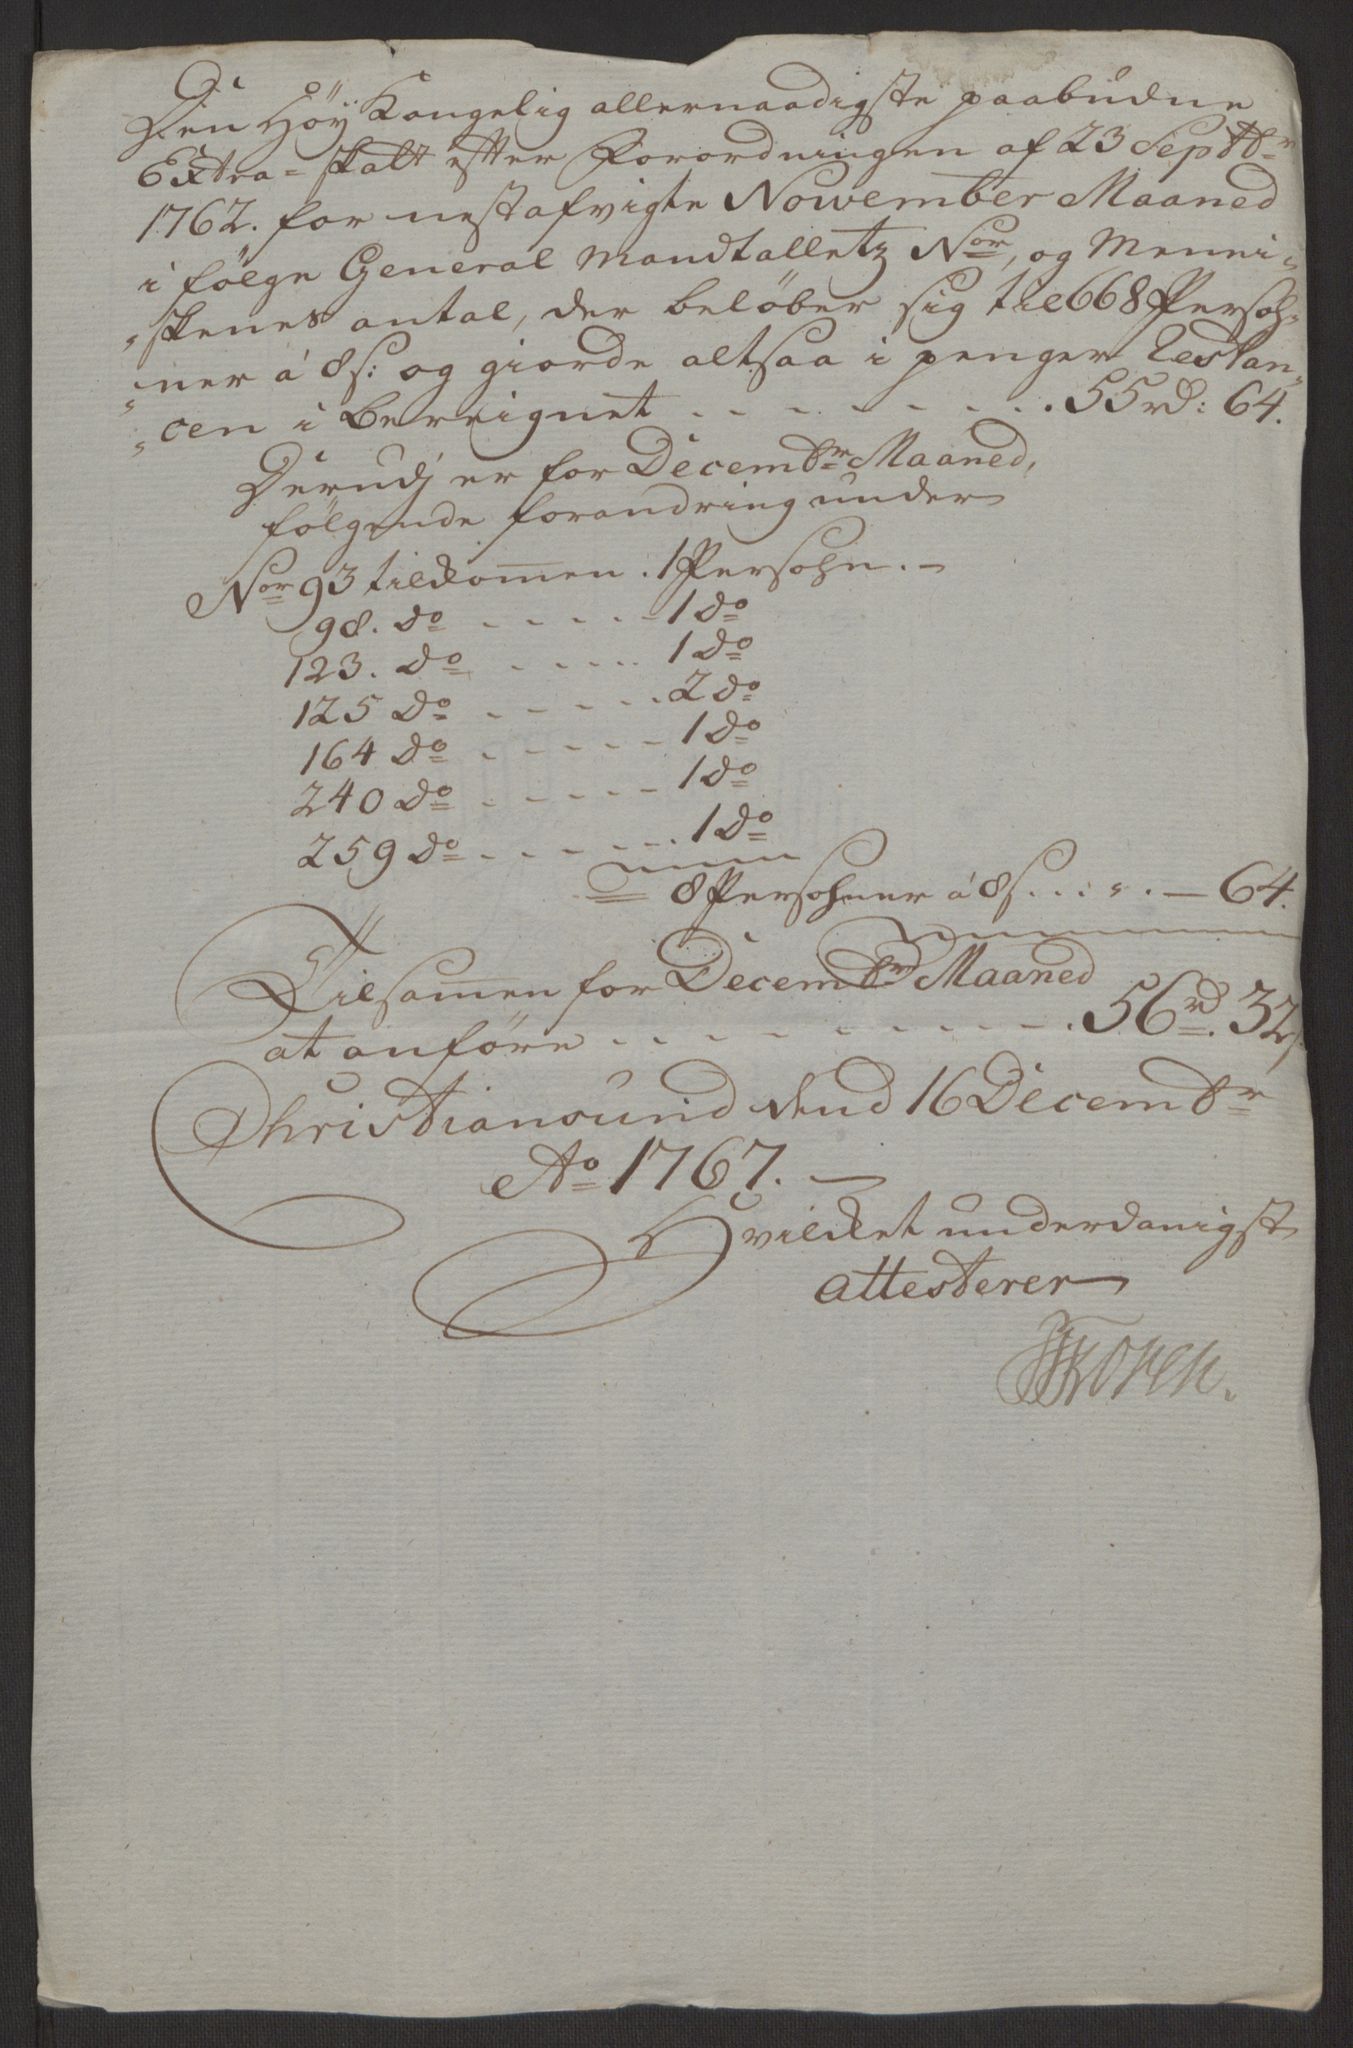 Den Höy Kongelig allernaadigste paabudne
Extra=skatt efter Forordningen af 23 Septbr
1762. for nestafvigte November Maaned
i følge General Mandtalletz Nor, og Menni„
„skenes antal, der beløber sig til 668 Persoh„
„ner á 8 s: og giorde altsaa i penger Restan„
„cen i bereignet . . . . . . . . 55 rd: 64.
Derudj er for Decembr Maaned,
følgende forandring under
Nor 93 tilkomen . 1 Persohn. –
98. do . . . . . 1 do
123. do . . . . . 1 do
125 do . . . . . 2 do
164 do . . . . . 1 do
240 do . . . . . 1 do
259 do . . . . . . 1 do
8 Persohner á 8 s. . . . . — 64.
Tilsamen for Decembr Maaned
at anføre . . . . . . . . . 56 rd. 32 s.
Christiansund dend 16 Decembr
Ao 1767. —
Hvilket underdanigst
attesterer